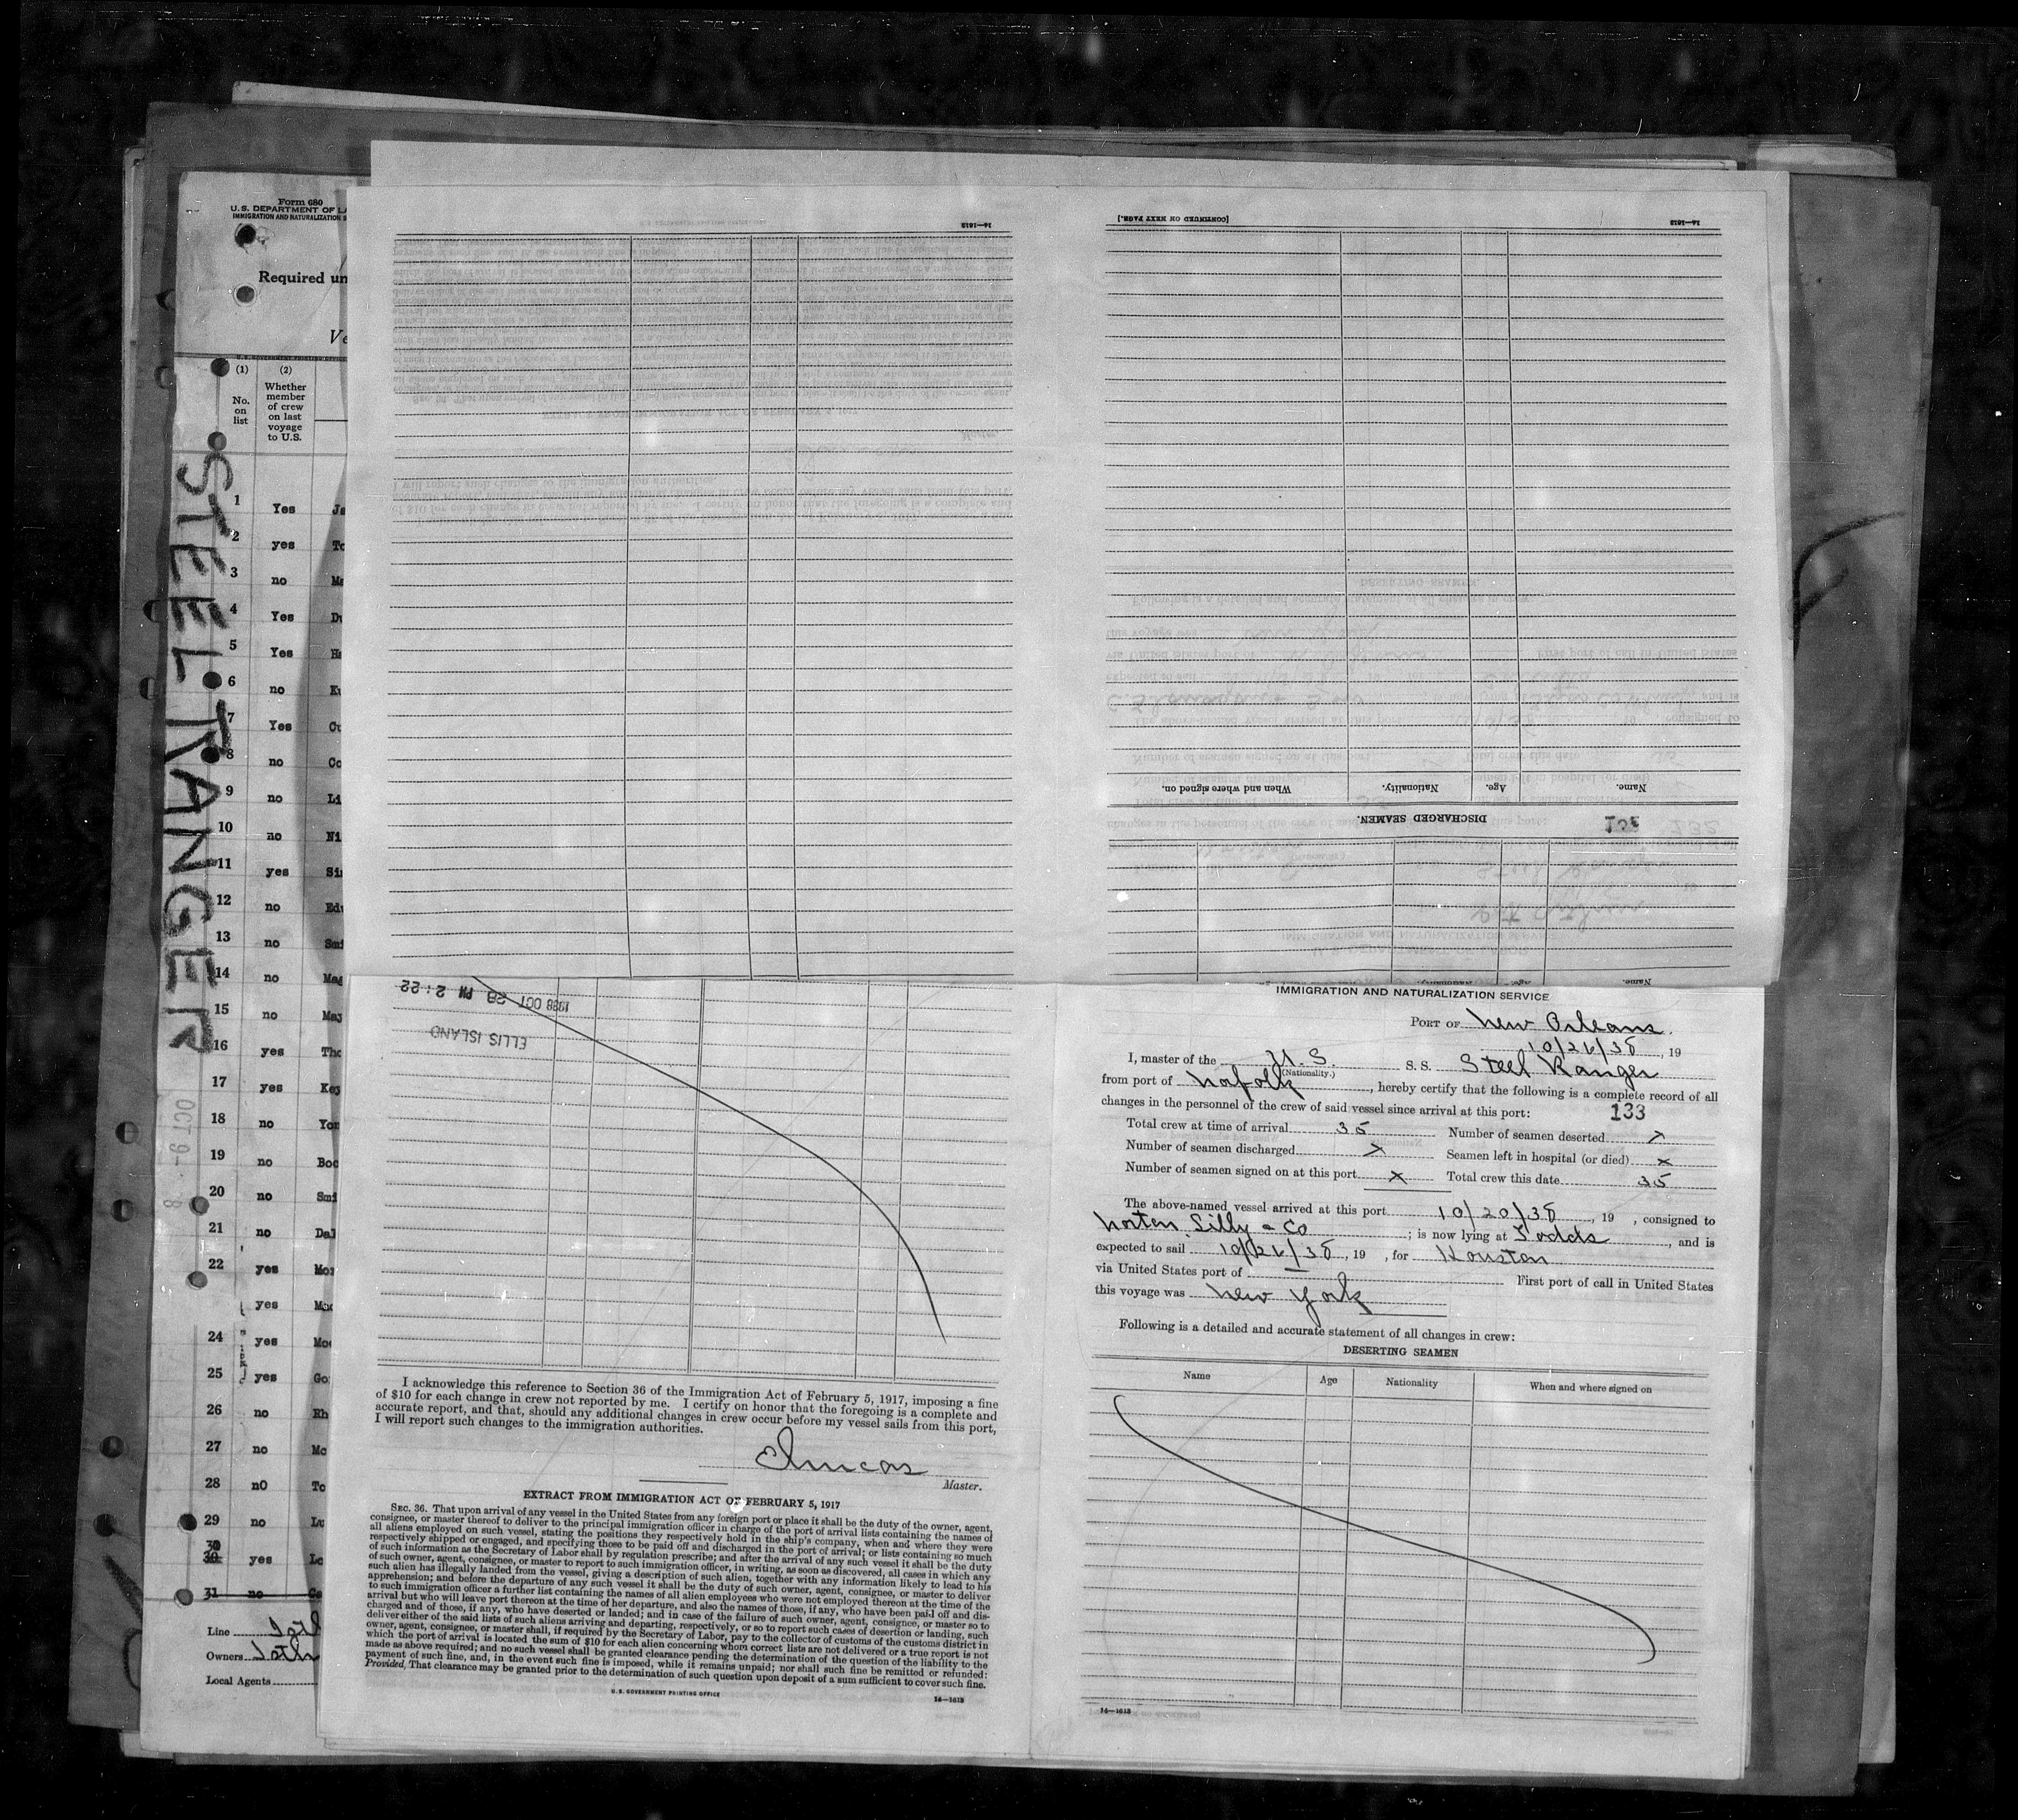 Form 680
U.S. DEPARTMENT OF LA
IMMIGRATION AND NATURALIZATION S
Required un
Ve
(1) (2)
No. on list
Whether member of crew on last voyage to U.S.
STEEL RANGER
1 Yes Ja
2 yes To
3 no Ma
4 Yes Du
5 Yes Ha
6 no Ku
7 Yes Cu
8 no Co
9 no Li
10 no Ni
11 yes Sin
12 no Edw
13 no Smi
14 no Mag
15 no May
16 yes Tho
17 yes Key
18 no You
19 no Boo
20 no Smi
21 no Dal
22 yes Mor
yes Mac
24 yes Moo
25 yes Go
26 no Rh
27 no Mc
28 n0 To
29 no Lu
30 yes Lo
31 no Ca
Line
Owners
Local Agents
16—1613
[CONTINUED ON NEXT PAGE.]
16—1613
When and where signed on. Nationality. Age. Name.
DISCHARGED SEAMEN.
1938 OCT 28 PM 2:22
ELLIS ISLAND
I acknowledge this reference to Section 36 of the Immigration Act of February 5, 1917, imposing a fine
of $10 for each change in crew not reported by me. I certify on honor that the foregoing is a complete and
accurate report, and that, should any additional changes in crew occur before my vessel sails from this port,
I will report such changes to the immigration authorities.
Master.
EXTRACT FROM IMMIGRATION ACT OF FEBRUARY 5, 1917
SEC. 36. That upon arrival of any vessel in the United States from any foreign port or place it shall be the duty of the owner, agent,
consignee, or master thereof to deliver to the principal immigration officer in charge of the port of arrival lists containing the names of
all aliens employed on such vessel, stating the positions they respectively hold in the ship's company, when and where they were
respectively shipped or engaged, and specifying those to be paid off and discharged in the port of arrival; or lists containing so much
of such information as the Secretary of Labor shall by regulation prescribe; and after the arrival of any such vessel it shall be the duty
of such owner, agent, consignee, or master to report to such immigration officer, in writing, as soon as discovered, all cases in which any
such alien has illegally landed from the vessel, giving a description of such alien, together with any information likely to lead to his
apprehension; and before the departure of any such vessel it shall be the duty of such owner, agent, consignee, or master to deliver
to such immigration officer a further list containing the names of all alien employees who were not employed thereon at the time of the
arrival but who will leave port thereon at the time of her departure, and also the names of those, if any, who have been paid off and dis-
charged and of those, if any, who have deserted or landed; and in case of the failure of such owner, agent, consignee, or master so to
deliver either of the said lists of such aliens arriving and departing, respectively, or so to report such cases of desertion or landing, such
owner, agent, consignee, or master shall, if required by the Secretary of Labor, pay to the collector of customs of the customs district in
which the port of arrival is located the sum of $10 for each alien concerning whom correct lists are not delivered or a true report is not
made as above required; and no such vessel shall be granted clearance pending the determination of the question of the liability to the
payment of such fine, and, in the event such fine is imposed, while it remains unpaid; nor shall such fine be remitted or refunded:
Provided, That clearance may be granted prior to the determination of such question upon deposit of a sum sufficient to cover such fine.
U.S. GOVERNMENT PRINTING OFFICE 16—1613
IMMIGRATION AND NATURALIZATION SERVICE
PORT OF New Orleans.
10/26/38, 19
I, master of the U.S. S. S. Steel Ranger
(Nationality.)
from port of Norfolk, hereby certify that the following is a complete record of all
changes in the personnel of the crew of said vessel since arrival at this port: 133
Total crew at time of arrival 35 Number of seamen deserted x
Number of seamen discharged x Seamen left in hospital (or died) x
Number of seamen signed on at this port x Total crew this date 35
The above-named vessel arrived at this port 10/20/38, 19 , consigned to
Norton, Lilly & Co ; is now lying at Todds, and is
expected to sail 10/26/38, 19 , for Houston
via United States port of — First port of call in United States
this voyage was New York
Following is a detailed and accurate statement of all changes in crew:
DESERTING SEAMEN
Name Age Nationality When and where signed on
16—1613